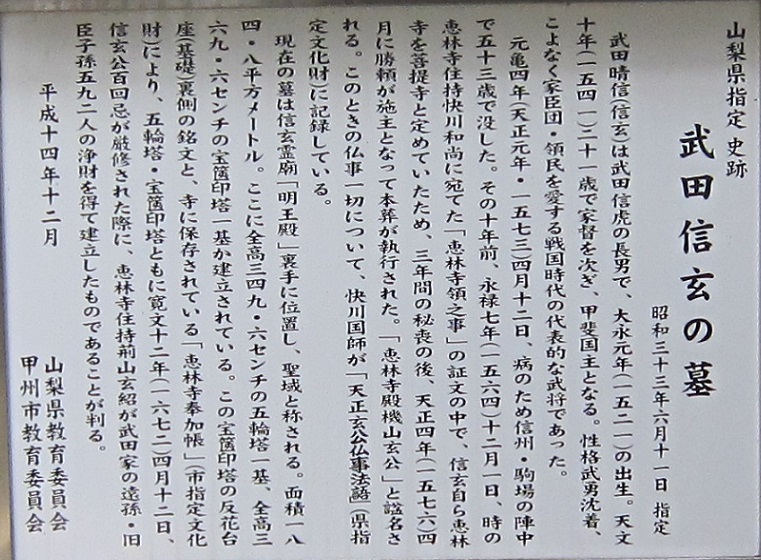 山梨県指定 史跡
武田信玄の墓
昭和三十三年六月十一日 指定
武田晴信(信玄)は武田信虎の長男で、大永元年(一五二一)の出生。天文
十年(一五四一)二十一歳で家督を次ぎ、甲斐国主となる。性格武勇沈着、
こよなく家臣団・領民を愛する戦国時代の代表的な武将であった。
元亀四年(天正元年・一五七三)四月十二日、病のため信州・駒場の陣中
で五十三歳で没した。その十年前、永禄七年(一五六四)十二月一日、時の
恵林寺住持快川和尚に宛てた「恵林寺領之事」の証文の中で、信玄自ら恵林
寺を菩提寺と定めていたため、三年間の秘喪の後、天正四年(一五七六)四
月に勝頼が施主となって本葬が執行された。「恵林寺殿機山玄公」と諡名さ
れる。このときの仏事一切について、快川国師が「天正玄公仏事法語」(県指
定文化財)に記録している。
現在の墓は信玄霊廟「明王殿」裏手に位置し、聖域と称される。面積一八
四・八平方メートル。ここに全高三四九・六センチの五輪塔一基、全高三
六九・六センチの宝篋印塔一基か建立されている。この宝篋印塔の反花台
座(基礎)裏側の銘文と、寺に保存されている「恵林寺奉加帳」(市指定文化
財)により、五輪塔・宝篋印塔ともに寛文十二年(一六七二)四月十二日、
信玄公百回忌が厳修された際に、恵林寺住持荊山玄紹が武田家の遠孫・旧
臣子孫五九二人の浄財を得て建立したものであることが判る。
平成十四年十二月
山梨県教育委員会
甲州市教育委員会